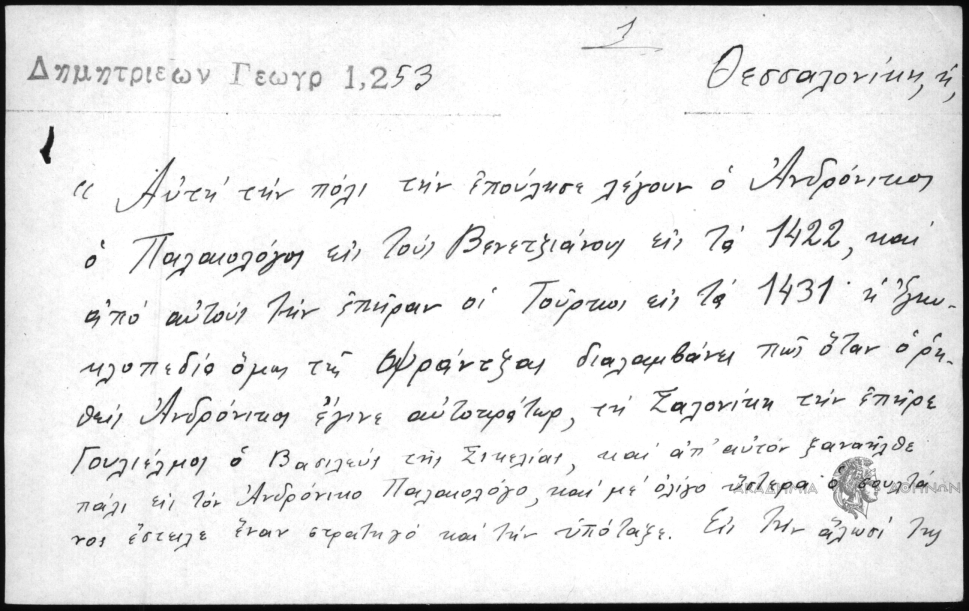 1
Δημητριεων Γεωγρ 1,253
Θεσσαλονίκη, ἡ,
« Αὐτή τήν πόλι τήν ἐπούλησε λέγουν ὁ Ἀνδρόνικος
ὁ Παλαιολόγος εἰς τούς Βενετζιάνους εἰς τά 1422, καί
ἀπό αὐτούς τήν ἐπῆραν οἱ Τοῦρκοι εἰς τά 1431· ἡ ἐγκυ-
κλοπεδία ὅμως τῆς Φράντζας διαλαμβάνει πῶς ὅταν ὁ ῥη-
θείς Ἀνδρόνικος ἔγινε αὐτοκράτωρ, τή Σαλονίκη τήν ἐπῆρε
Γουλιέλμος ὁ Βασιλεύς τῆς Σικελίας, καί ἀπ' αὐτόν ξαναῆλθε
πάλι εἰς τόν Ἀνδρόνικο Παλαιολόγο, καί μέ ὀλίγο ὕστερα ὁ σουλτά
νος ἔστειλε ἕναν στρατηγό καί τήν ὑπόταξε. Εἰς τήν ἅλωσί της
ΑΚΑΔΗΜΙΑ ΑΘΗΝΩΝ